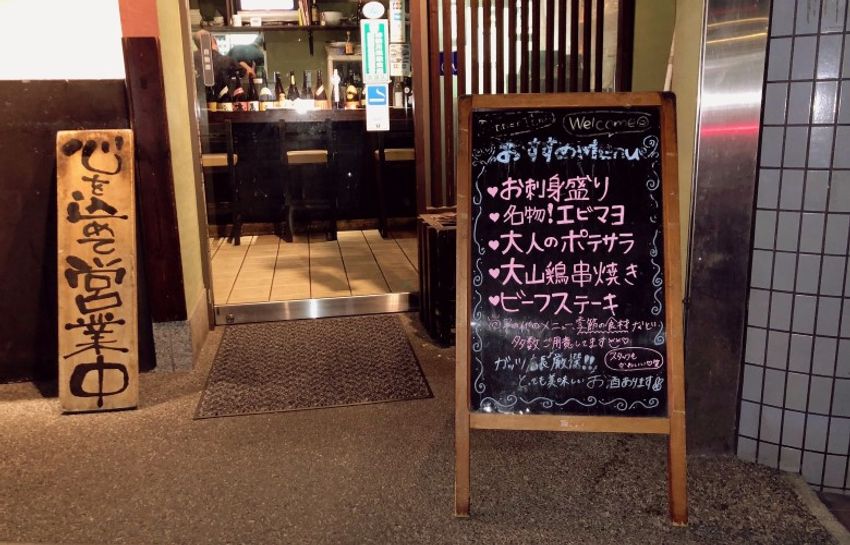 心を込めて営業中
Welcome
おすすめ
♥お刺身盛り
♥名物!エビマヨ
♥大人のポテサラ
♥大山鶏串焼き
♥ビーフステーキ
その他メニュー、季節の食材など
多数ご用意してます♡♡
ガッツ 厳厳選!!
スタッフも
かわいい
とっても美味しいお酒あります